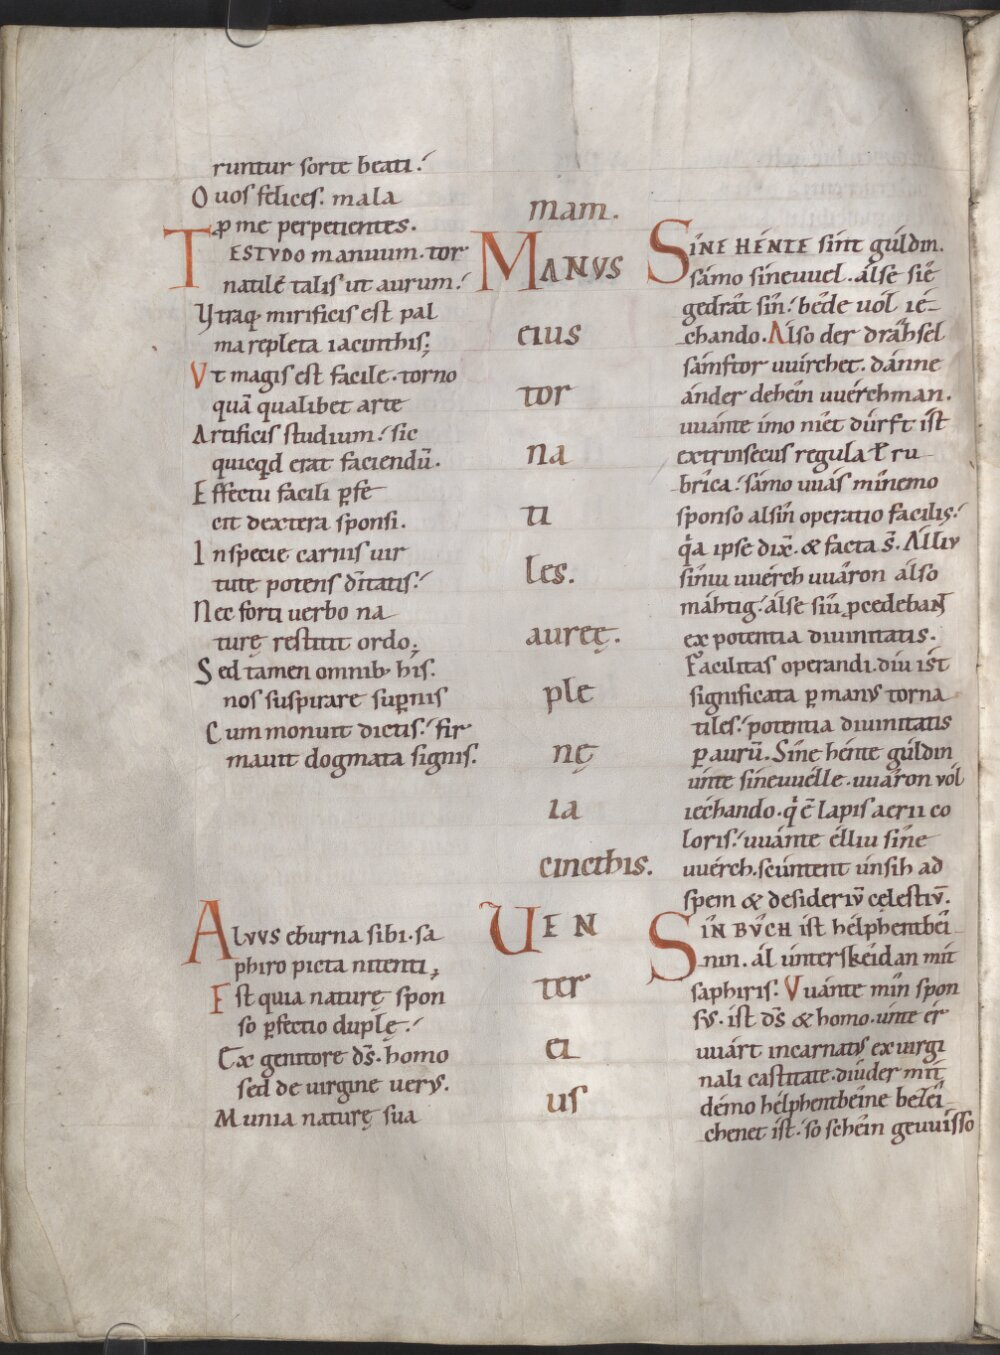 runtur sorte beati.
O uos felices. mala
ꝓ me perpetientes.
TESTVDO manuum. tor
natilẽ talis ut aurum.
Vtraq; mirificis est pal
ma repleta iacinthis;
Vt magis est facile. torno
quã qualibet arte
Artificis studium. sic
quicqd erat faciendũ.
Effectu facili ꝑfe
cit dextera sponsi.
In specie carnis uir
tute potens dĩtatis.
Nec forti uerbo na
turę restitit ordo;
Sed tamen omnib; his.
nos suspirare suꝑnis
Cum monuit dictis. fir
mauit dogmata signis.
Aluus eburna sibi. sa
phiro picta nitenti,
Est quia naturę spon
so ꝑfectio duplę.
Ex genitore dš. homo
sed de uirgine uerus.
Munia naturę sua
mam.
MANVS
eius
tor
na
ti
les.
aureę.
ple
nę
ia
cincthis.
VEN
ter
ei
us
SINE HÉNTE sint gúldin.
sámo sineuuel. álse siê
gedrât sîn. bêde uól ié-
chando. Álso der drâhsel
sámftor uuírchet. dánne
ánder dehêin uuérchman.
uuánte ímo nîet dúrft ist
extrinsecus regula ł ru
brîca. sámo uuás mînemo
sponso alsîn operatio facilis.
qͥa ipse dix̃. & facta s̃. Álliv
sîniu uuérch uuâron álso
máhtig. álse siû ꝓcedebañ
ex potentia diuinitatis.
Facilitas operandi. diu ist
significata ꝑ manꝰ torna
tiles. potentia diuinitatis
ꝑ aurũ. Sîne hénte gúldin
únte sineuuélle. uuâron vól
iéchando. qͥ ẽ lapis aerii co
loris. uuánte élliu sîne
uuérch. scúntent únsih ad
spem & desideriũ cęlestiũ.
SÎN BV́CH ist hélphentbêi
nin. ál únterskéidan mit
saphiris. Vuánte mîn spon
sꝰ. ist dš & homo. únte ér
uuárt incarnatꝰ ex uirgi
nali castitate. dîuder mit
démo hélphentbêine bezêi
chenet ist. so schéin geuuísso